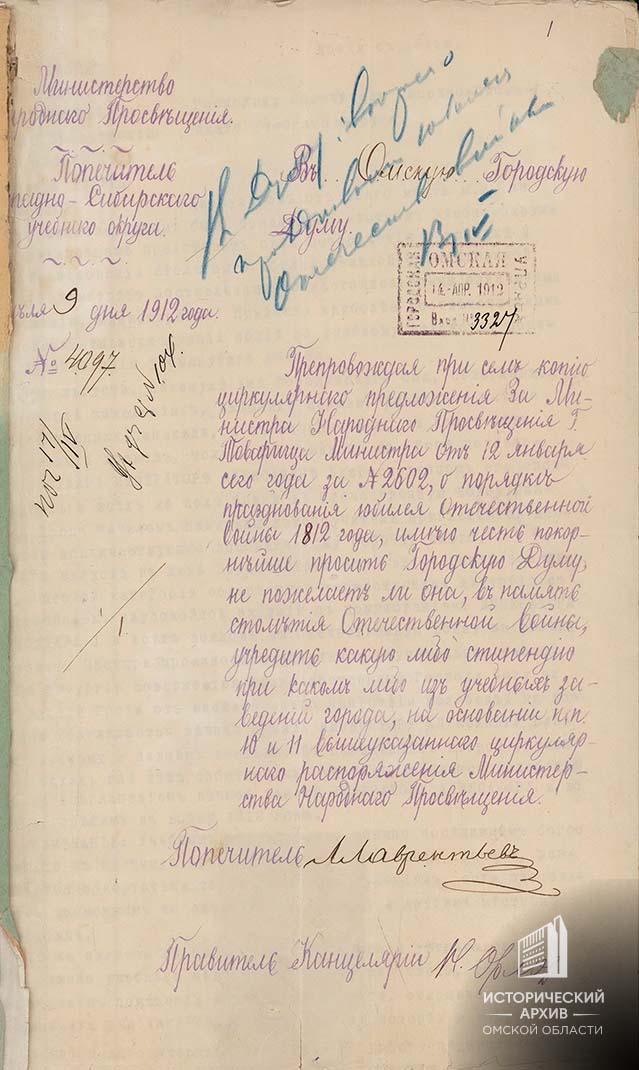 1
Министерство
ароднаго Просвѣщенія.
Попечитель
падно-Сибирскаго
учебнаго округа.
Въ Омскую Городскую
Думу.
Къ
юбилея
отечеств войны
ГОРОДСКАЯ
ОМСКАЯ
УПРАВА
14 АПР. 1912
Вход. № 3327
ѣля 9 дня 1912 года.
№ 4097.
Препровождая при семъ копію
циркулярнаго предложенія За Ми-
нистра Народнаго Просвѣщенія Г.
Товарища Министра отъ 12 января
сего года за № 2602, о порядкѣ
празднованія юбилея Отечественной
войны 1812 года, имѣю честь покор-
нѣйше просить Городскую Думу,
не пожелаетъ ли она, въ память
столѣтія Отечественной войны,
учредить какую либо стипендію
при какомъ либо изъ учебныхъ за-
веденій города, на основаніи п.п.
10 и 11 вышеуказаннаго циркуляр-
наго распоряженія Министер-
ства Народнаго Просвѣщенія.
Попечитель Л Лаврентьевъ
Правитель Канцеляріи
ИСТОРИЧЕСКИЙ
АРХИВ
ОМСКОЙ ОБЛАСТИ